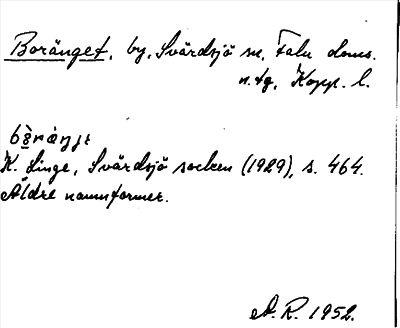 Boränget, by, Svärdsjö sn, Falu doms.
n. tg, Kopp. l.
K. Linge, Svärdsjö socken (1929), s. 464.
Äldre namnformer.
A. R. 1952.